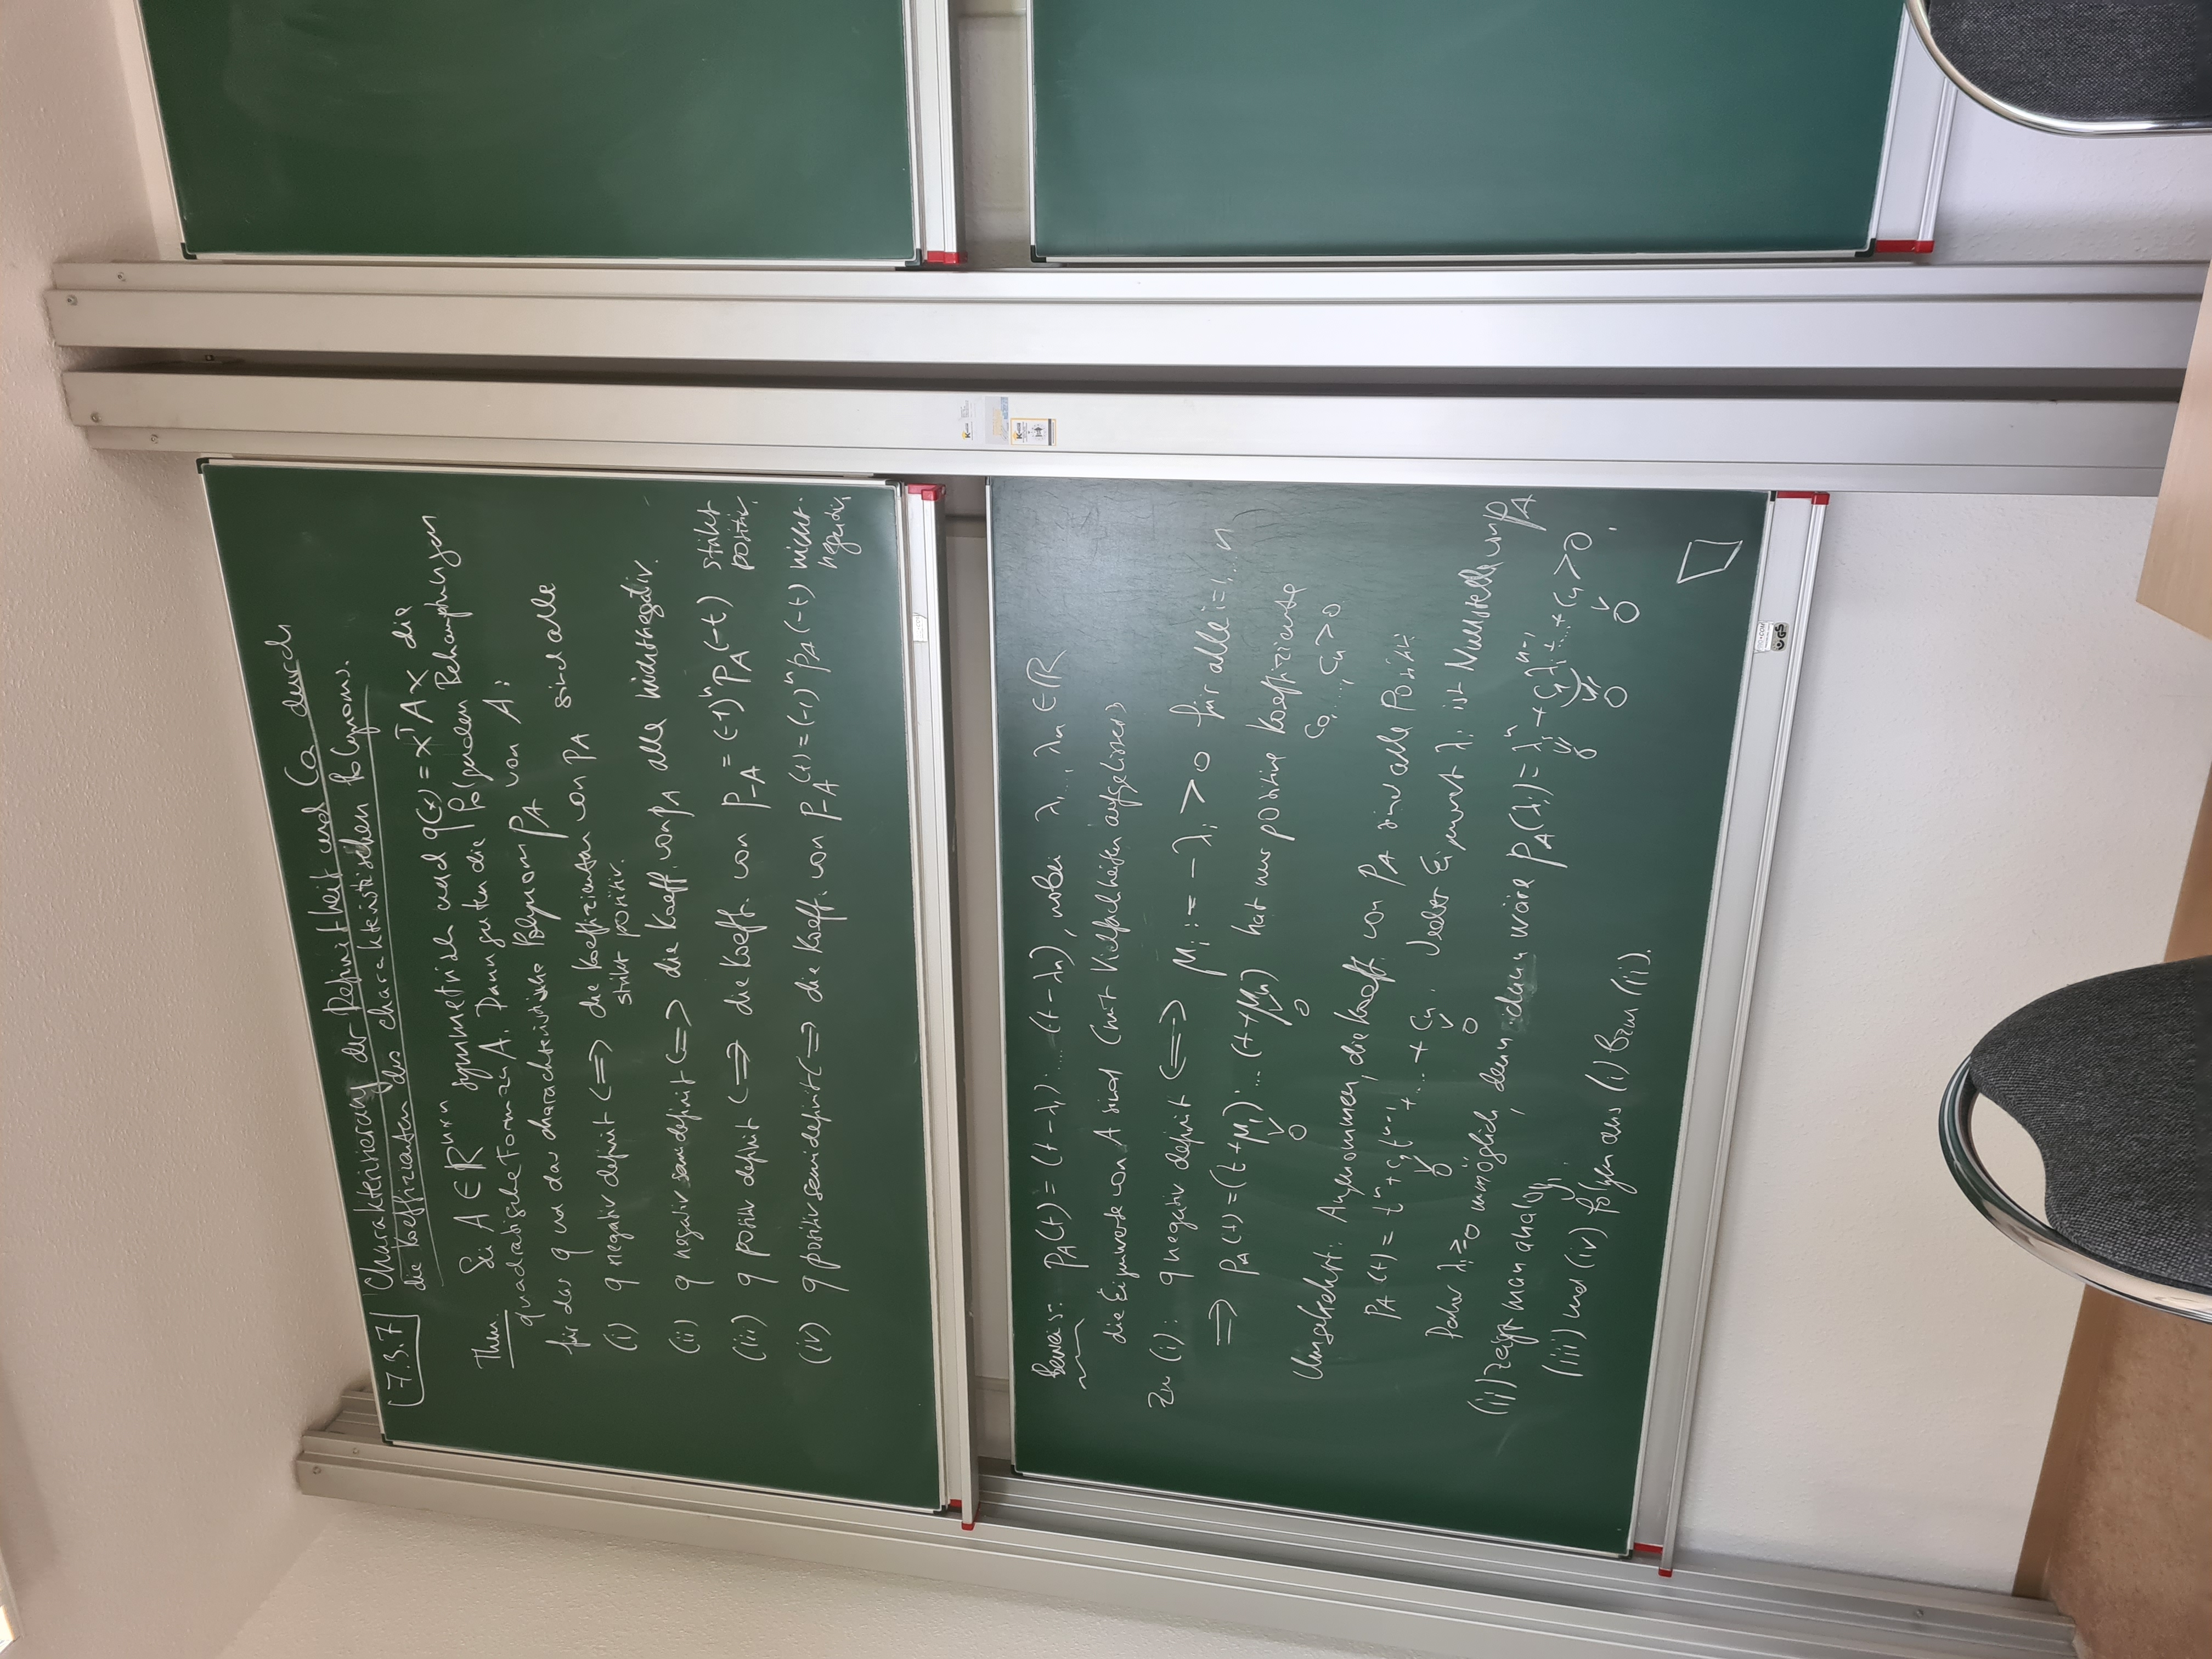 7.3.7 Charakterisierung der Definitheit und Co durch
die Koeffizienten des charakteristischen Polynoms.
Thm. Sei A ∈ ℝⁿˣⁿ symmetrisch und q(x) = xᵀAx die
quadratische Form zu A. Dann gelten die folgenden Behauptungen
für das q und das charachteristische Polynom p_A von A:
(i) q negativ definit <=> die Koeffizienten von p_A sind alle
strikt positiv.
(ii) q negativ semidefinit <=> die Koeff. von p_A alle nichtnegativ.
(iii) q positiv definit <=> die Koeff. von p_{-A} = (-1)ⁿ p_A(-t) strikt
positiv.
(iv) q positiv semidefinit <=> die Koeff. von p_{-A}(t) = (-1)ⁿ p_A(-t) nicht-
negativ.
Beweis: p_A(t) = (t-λ₁)·...(t-λₙ), wobei λ₁,..., λₙ ∈ ℝ
die Eigenwerte von A sind (mit Vielfachheiten aufgelistet)
Zu (i): q negativ definit <=> μᵢ := -λᵢ > 0 für alle i=1...n
=> p_A(t) = (t+μ₁)·...(t+μₙ) hat nur positive Koeffiziente
∨ ∨
0 0
c₀,...,cₙ > 0
Umgekehrt: Angenommen, die Koeff. von p_A sind alle Positiv:
p_A(t) = tⁿ + c₁tⁿ⁻¹ + ... + cₙ. Jeder Eigenwert λᵢ ist Nullstelle von p_A
∨ ∨
0 0
Daher λᵢ ≥ 0 unmöglich, denn dann wäre p_A(λᵢ) = λᵢⁿ + c₁λᵢⁿ⁻¹ + ... + cₙ > 0.
0 0 0
(ii) zeigt man analog.
(iii) und (iv) folgen aus (i) bzw (ii).
GS